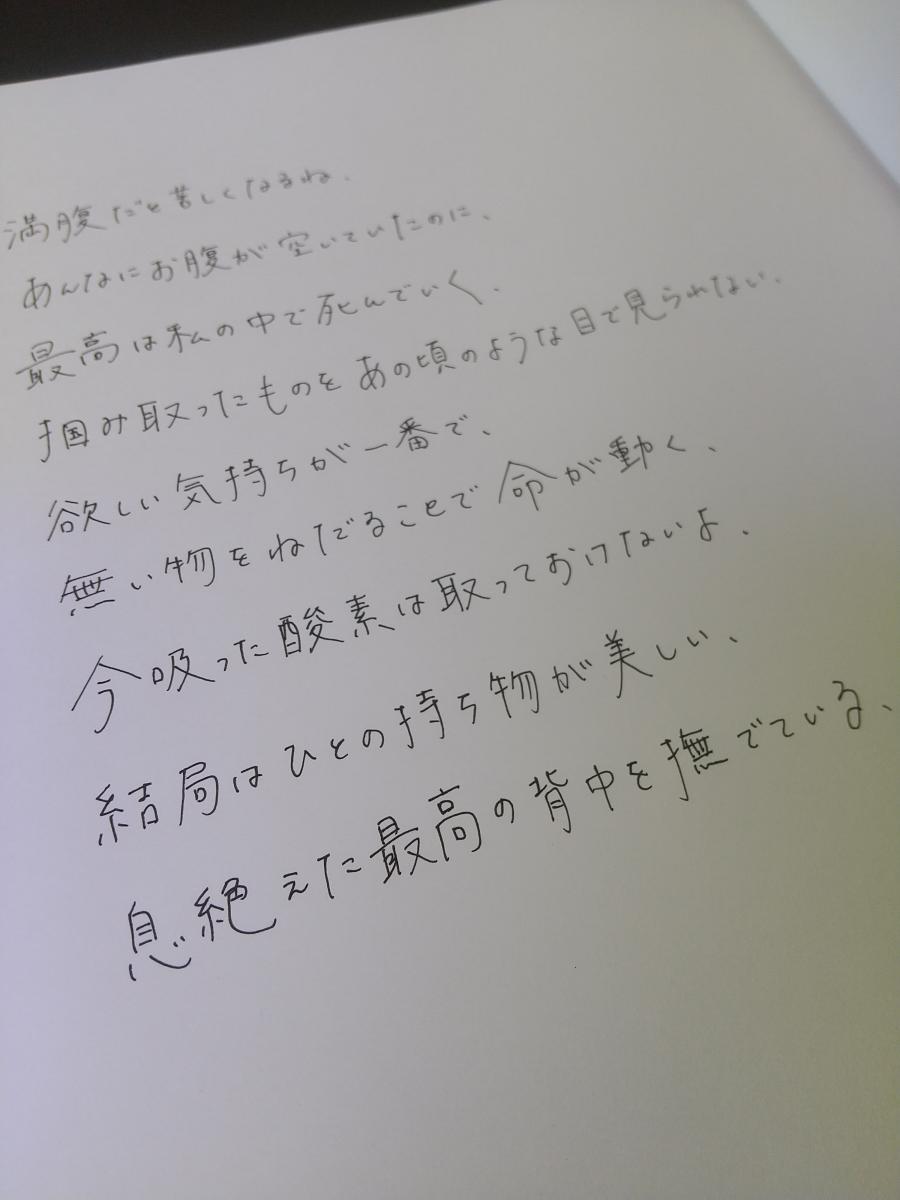 満腹だと苦しくなるね、
あんなにお腹が空いていたのに、
最高は私の中で死んでいく、
掴み取ったものをあの頃のような目で見られない、
欲しい気持ちが一番で、
無い物をねだることで命が動く、
今吸った酸素は取っておけないよ、
結局はひとの持ち物が美しい、
息絶えた最高の背中を撫でている、